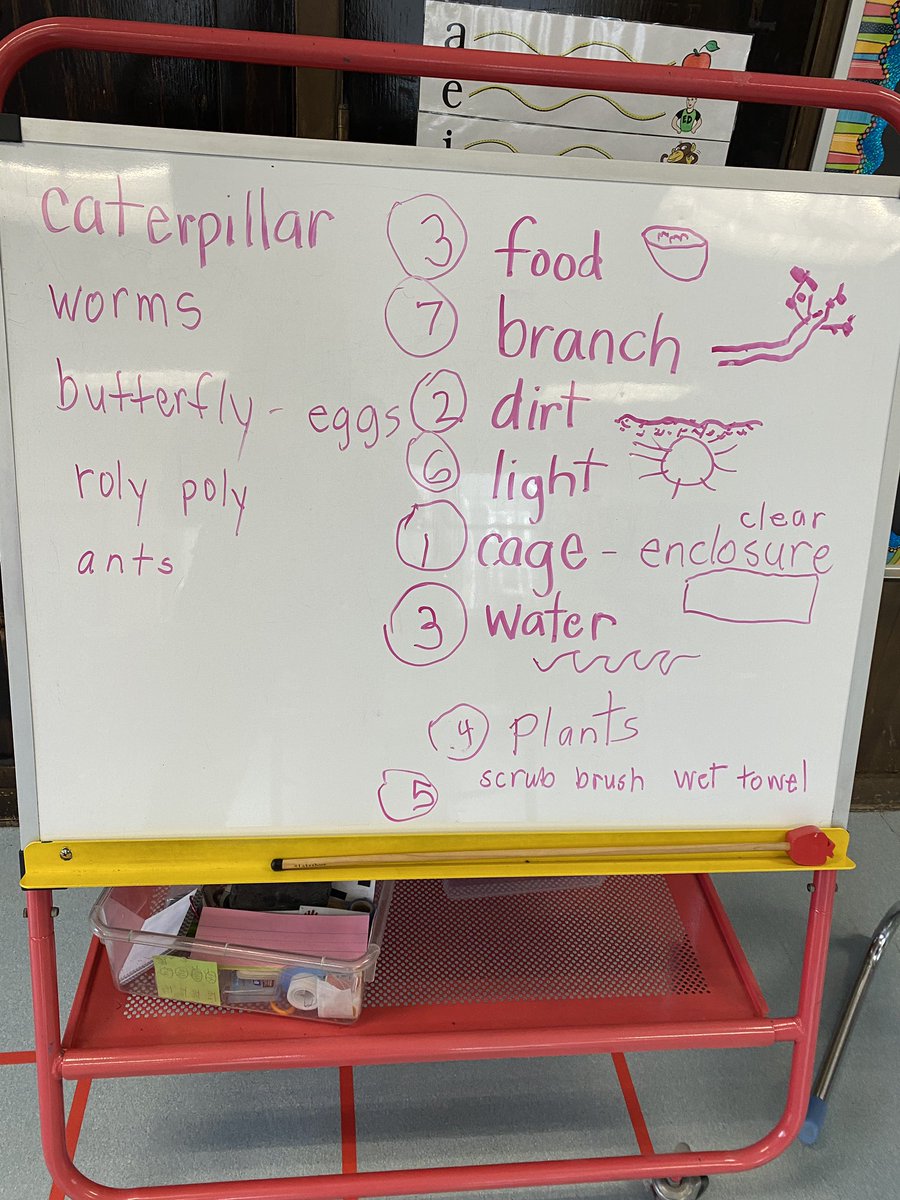 a
e
i
caterpillar
worms
butterfly - eggs
roly poly
ants
3 food
7 branch
2 dirt
6 light
clear
1 cage - enclosure
3 water
4 plants
5 scrub brush wet towel